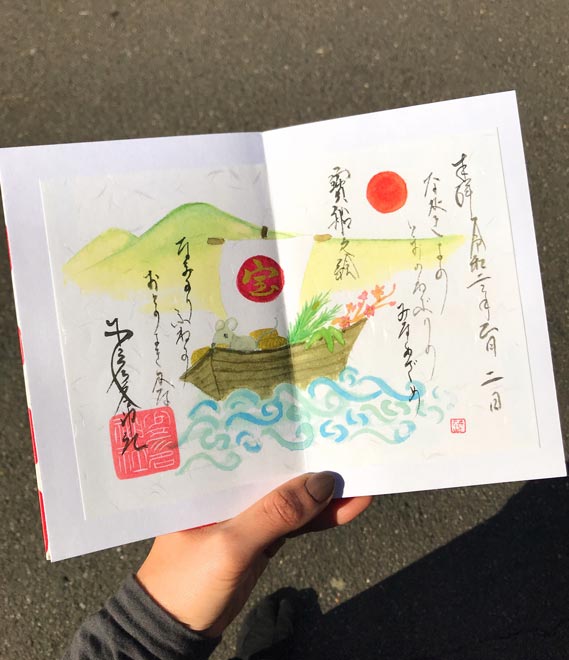 奉拝 令和二年正月二日
なかきよの
とおのねぶりの
みなめざめ
寳船之絵
宝
なみのりふねの
おとのよきかな